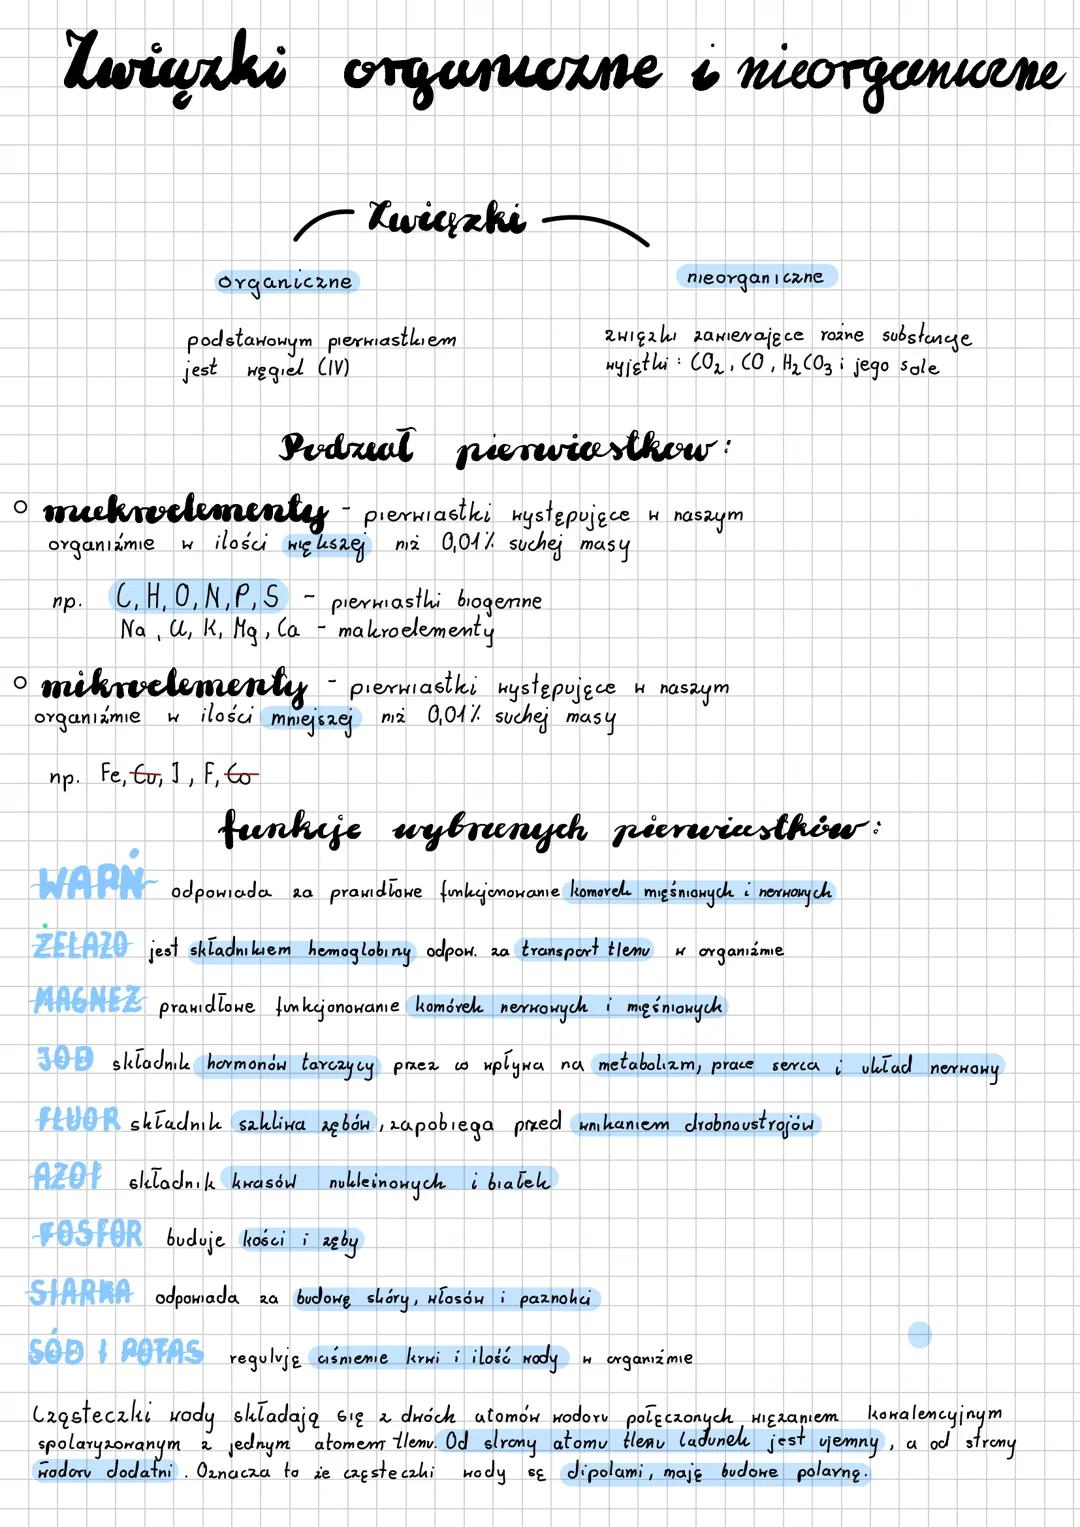 Związki organiczne i nieorganiczne
Związki
organiczne
nieorganiczne
podstawowym pierwiastkiem
jest węgiel (IV)
związki zawierające rożne substancje
wyjątki : CO₂, CO, H₂CO₃ i jego sole
Podział pierwiastkow:
makroelementy - pierwiastki występujące w naszym
organiźmie w ilości większej niż 0,01% suchej masy
np. C, H, O, N, P, S - pierwiastki biogenne
Na, Cl, K, Mg, Ca - makroelementy
mikroelementy - pierwiastki występujące w naszym
organiźmie w ilości mniejszej niż 0,01% suchej masy
np. Fe, Cu, I, F, Co
funkcje wybranych pierwiastków:
WAPŃ odpowiada za prawidłowe funkcjonowanie komorek mięśniowych i nerwowych
ŻELAZO jest składnikiem hemoglobiny odpow. za transport tlenu w organiźmie
MAGNEZ prawidłowe funkcjonowanie komórek nerwowych i mięśniowych
JOD składnik hormonów tarczycy przez co wpływa na metabolizm, prace serca i układ nerwowy
FLUOR składnik szkliwa zębów, zapobiega przed wnikaniem drobnoustrojów
AZOT składnik kwasów nukleinowych i białek
FOSFOR buduje kości i zęby
SIARKA odpowiada za budowę skóry, włosów i paznokci
SÓD I POTAS regulują ciśnienie krwi i ilość wody w organizmie
Cząsteczki wody składają się z dwóch atomów wodoru połączonych wiązaniem kowalencyjnym
spolaryzowanym z jednym atomem tlenu. Od strony atomu tlenu ładunek jest ujemny, a od strony
wodoru dodatni. Oznacza to że cząsteczki wody są dipolami, mają budowe polarną.